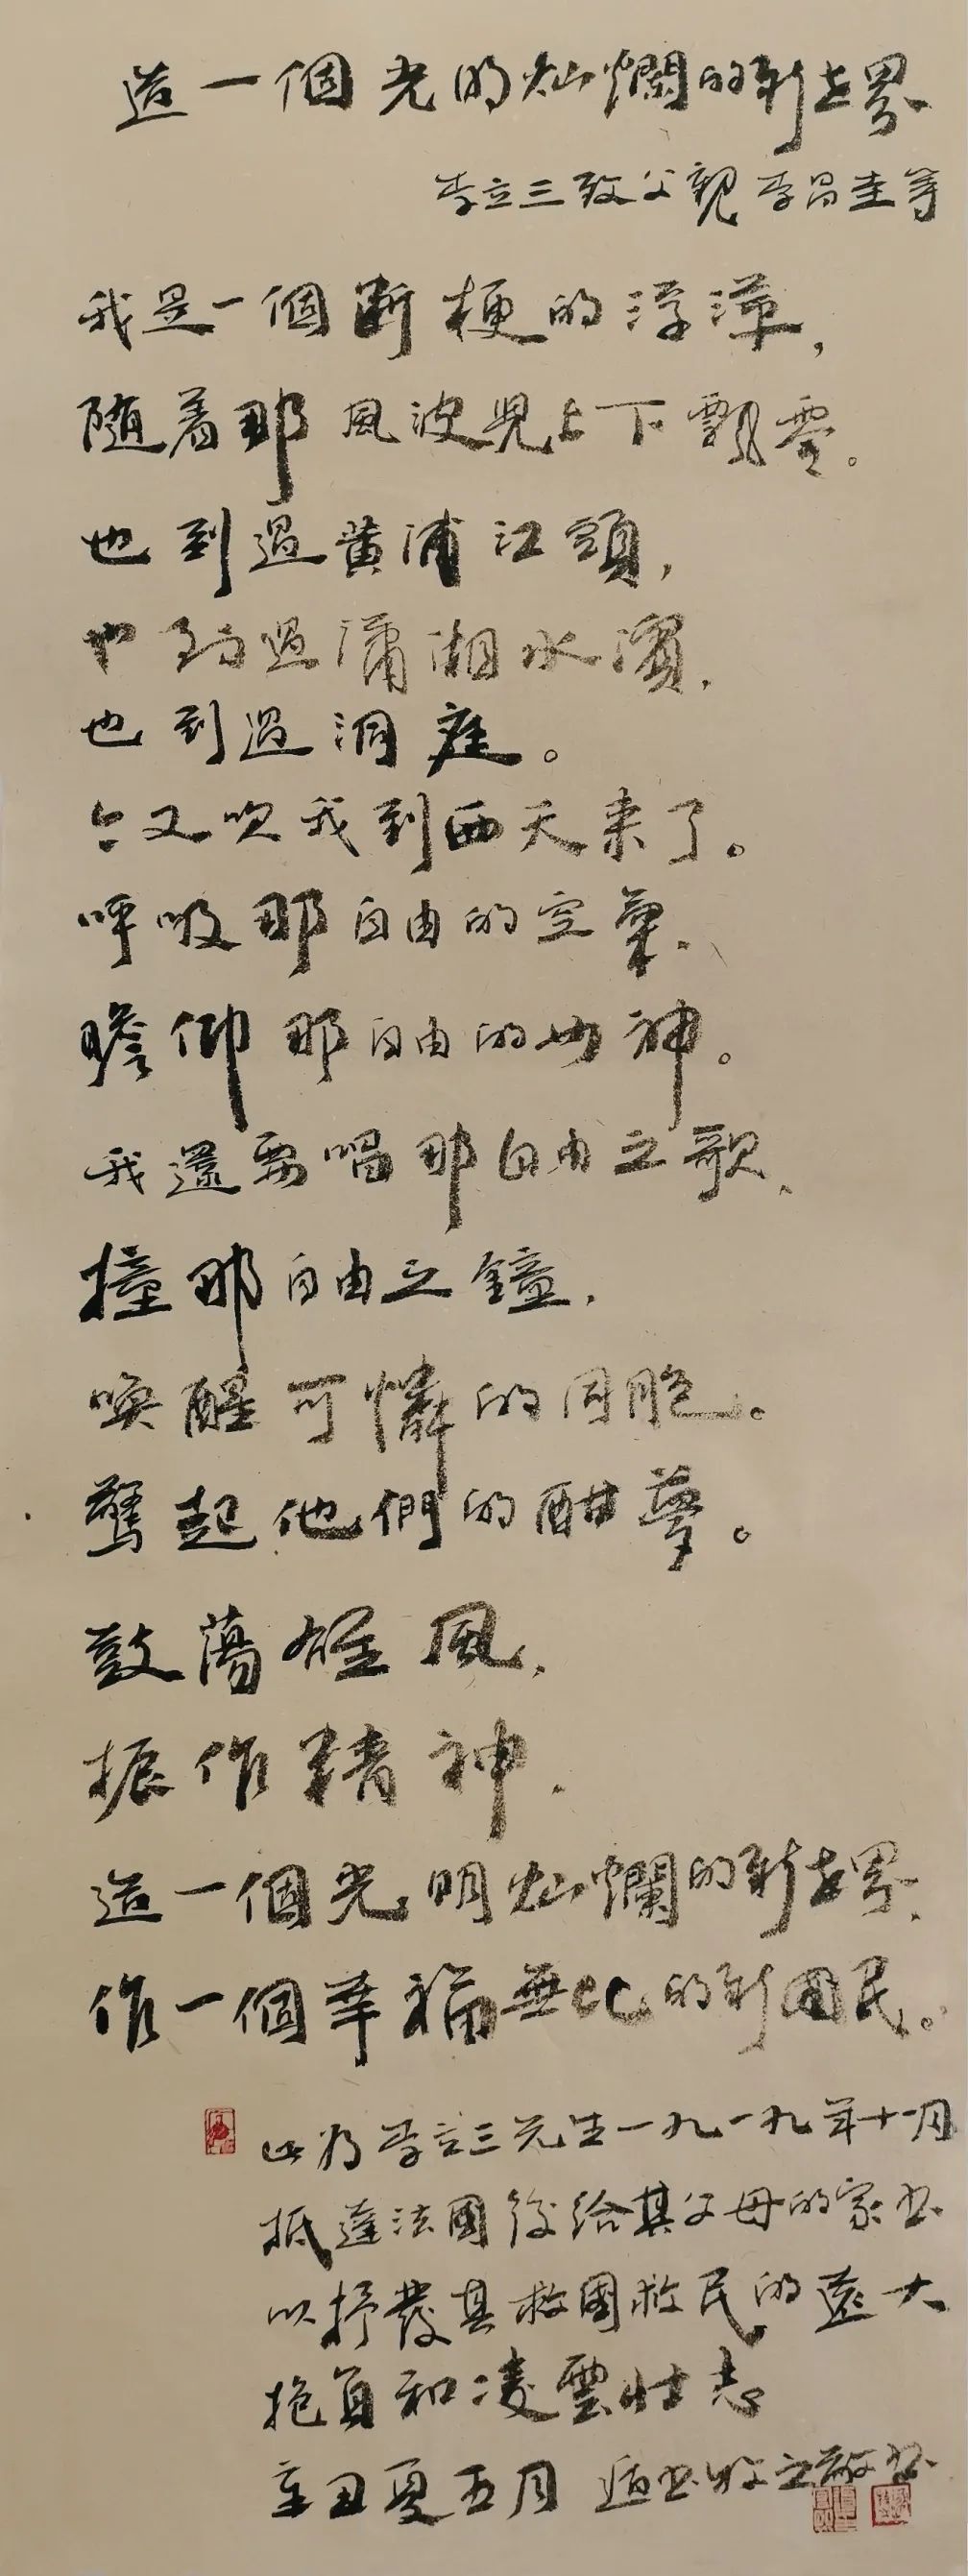 造一個光明灿爛的新世界
李立三致父親李昌圭等
我是一個断梗的浮萍，
随着那風波兒上下飄零。
也到過黄浦江頭，
也到過瀟湘水濱，
也到過洞庭。
今又吹我到西天来了。
呼吸那自由的空氣，
瞻仰那自由的女神。
我還要唱那自由之歌，
撞那自由之鐘，
喚醒可憐的同胞。
驚起他們的酣夢。
鼓蕩雄風，
振作精神，
造一個光明灿爛的新世界，
作一個幸福無比的新國民。
此为李立三先生一九一九年十一月
抵達法國後給其父母的家书
以抒發其救國救民的遠大
抱負和凌雲壮志
辛丑夏五月